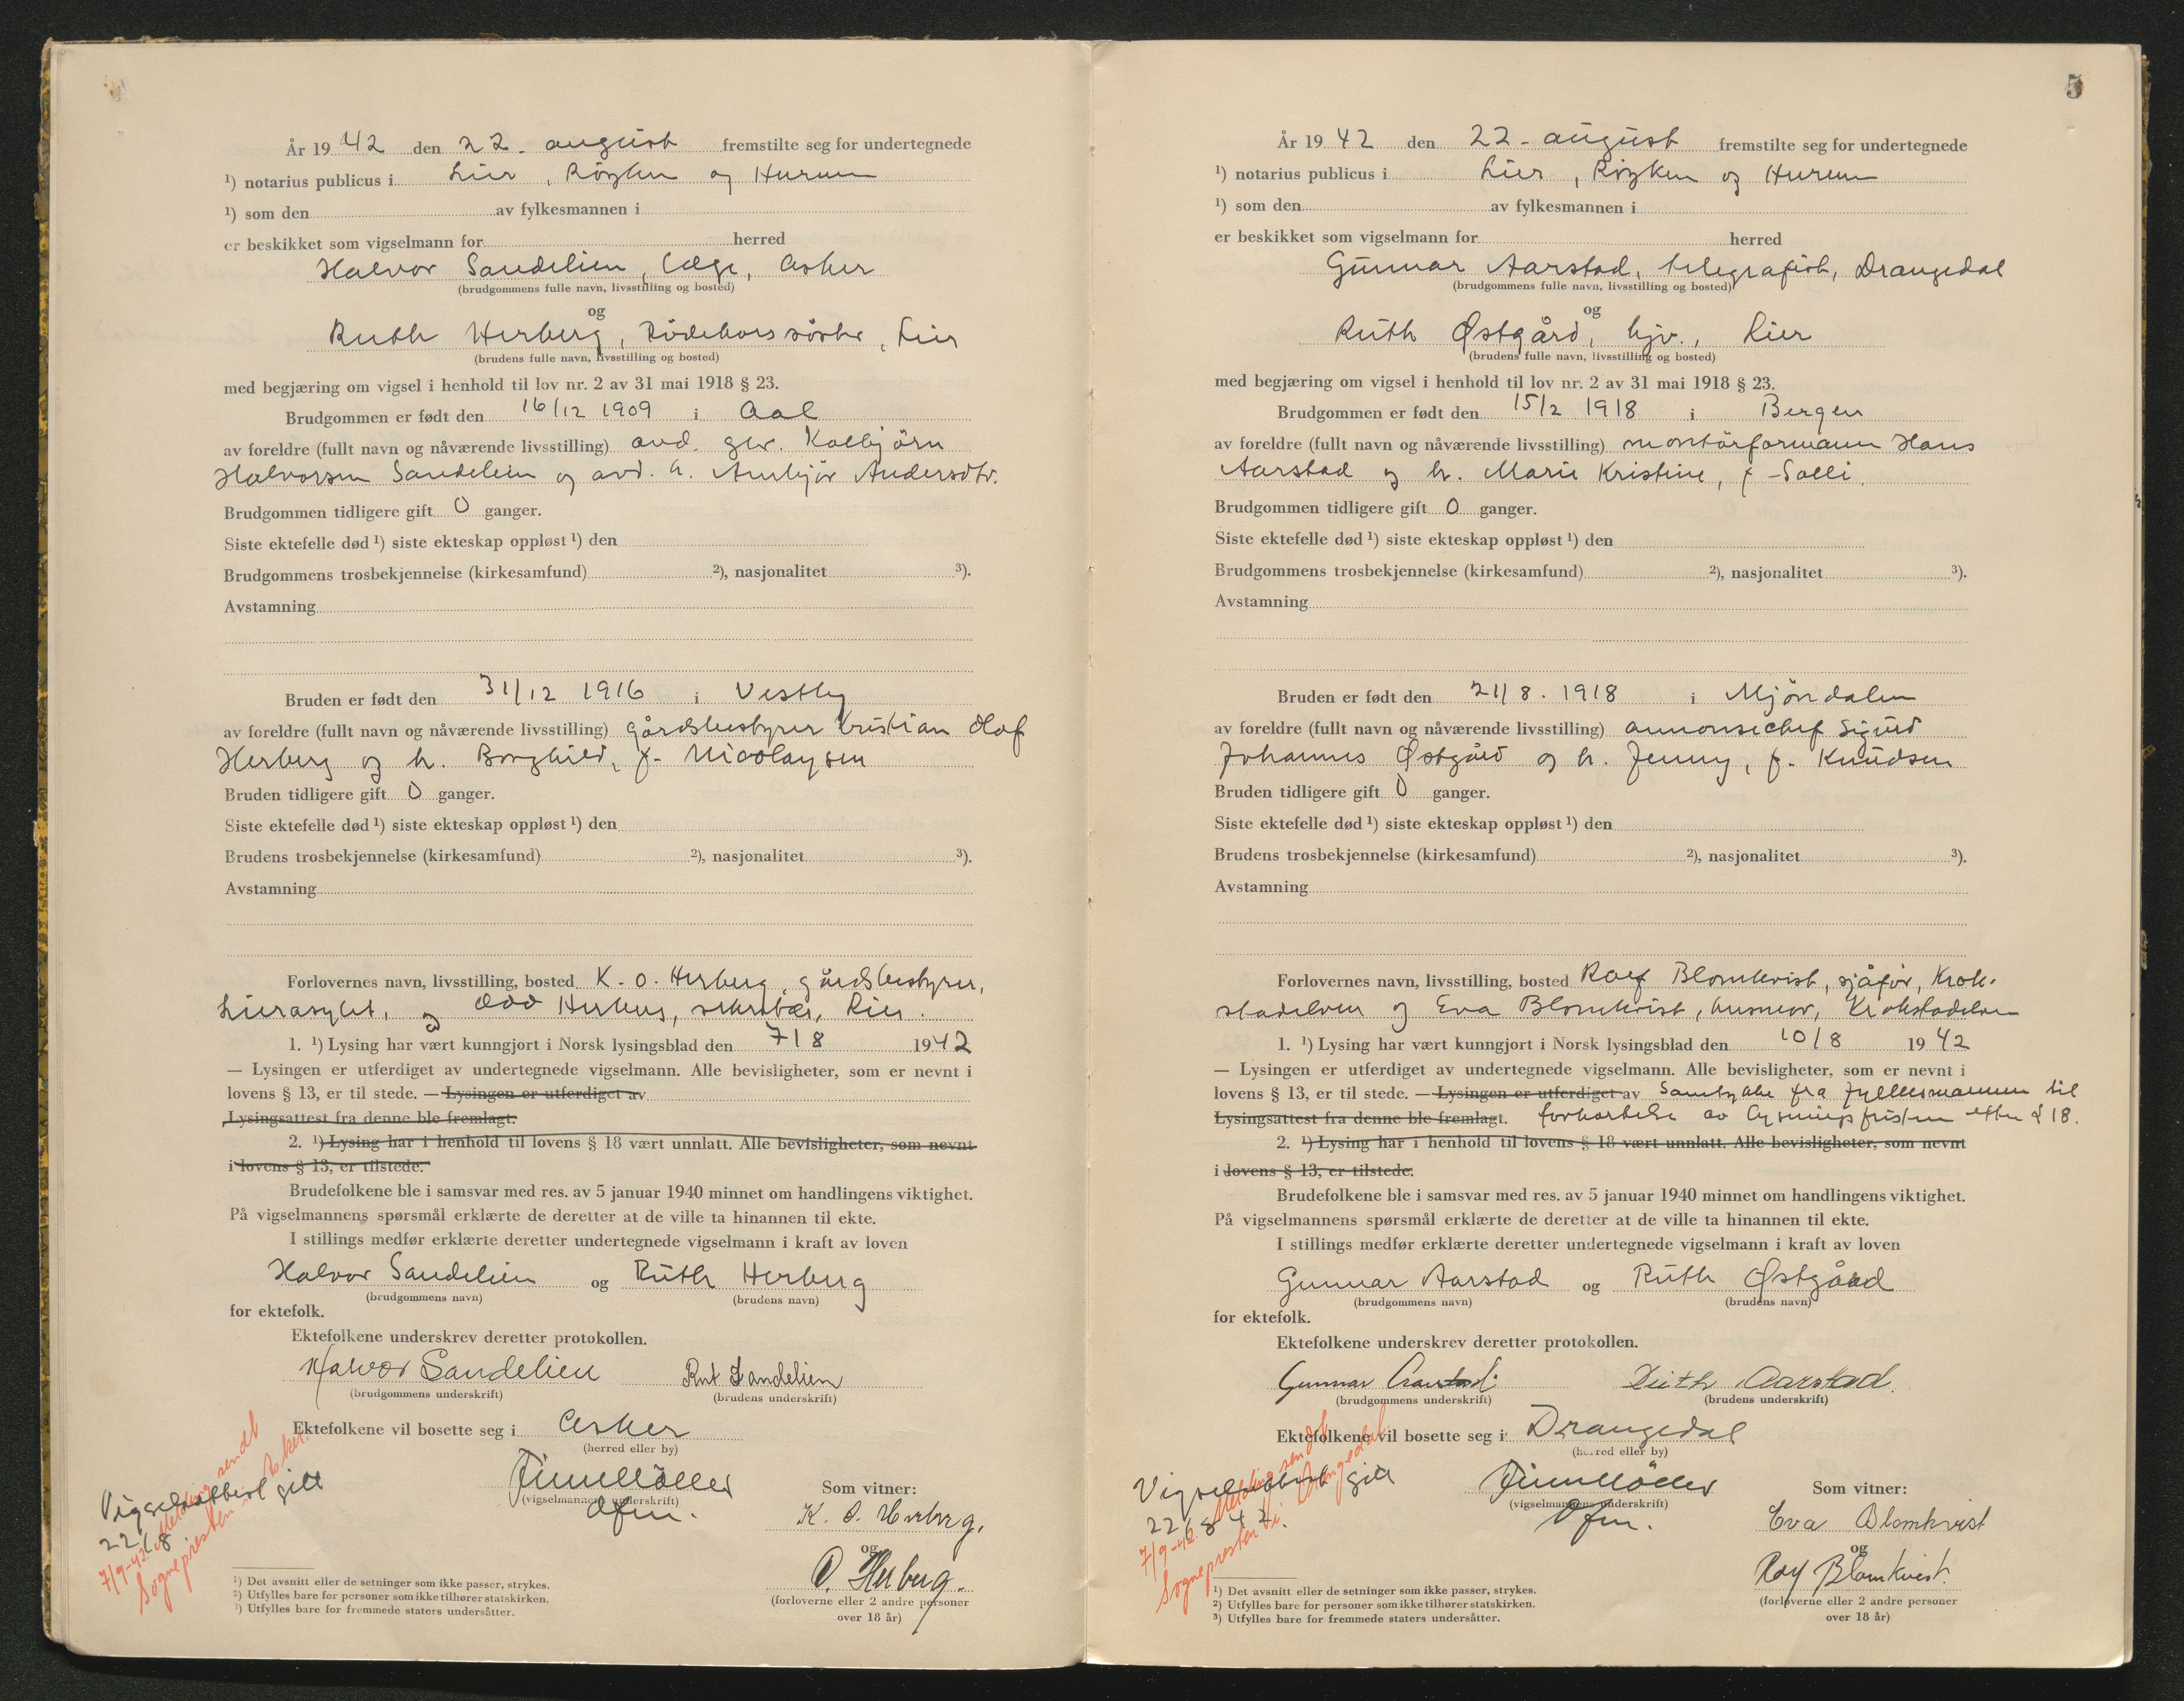 År 1942 den 22. august fremstilte seg for undertegnede
¹) notarius publicus i Lier, Røyken og Hurum
¹) som den av fylkesmannen i
er beskikket som vigselmann for herred
Halvor Sandelien, læge, Asker
(brudgommens fulle navn, livsstilling og bosted)
og
Ruth Herberg, Rödekorssöster, Lier
(brudens fulle navn, livsstilling og bosted)
med begjæring om vigsel i henhold til lov nr. 2 av 31 mai 1918 § 23.
Brudgommen er født den 16/12 1909 i Aal
av foreldre (fullt navn og nåværende livsstilling) avd. Kolbjörn
Halvorsen Sandelien og avd. h. Andersdtr.
Brudgommen tidligere gift 0 ganger.
Siste ektefelle død ¹) siste ekteskap oppløst ¹) den
Brudgommens trosbekjennelse (kirkesamfund) ²), nasjonalitet ³).
Avstamning
Bruden er født den 31/12 1916 i Vestby
av foreldre (fullt navn og nåværende livsstilling) gårdsbestyrer Kristian Olaf
Herberg og h. Borghild, f. Nicolaysen
Bruden tidligere gift 0 ganger.
Siste ektefelle død ¹) siste ekteskap oppløst ¹) den
Brudens trosbekjennelse (kirkesamfund) ²), nasjonalitet ³).
Avstamning
Forlovernes navn, livsstilling, bosted K. O. Herberg, gårdsbestyrer,
Lierasylet, og Odd Herberg, sekretær, Lier.
1. ¹) Lysing har vært kunngjort i Norsk lysingsblad den 7/8 1942
— Lysingen er utferdiget av undertegnede vigselmann. Alle bevisligheter, som er nevnt i
lovens § 13, er til stede. — Lysingen er utferdiget av
Lysingsattest fra denne ble fremlagt.
2. ¹) Lysing har i henhold til lovens § 18 vært unnlatt. Alle bevisligheter, som nevnt
i lovens § 13, er tilstede.
Brudefolkene ble i samsvar med res. av 5 januar 1940 minnet om handlingens viktighet.
På vigselmannens spørsmål erklærte de deretter at de ville ta hinannen til ekte.
I stillings medfør erklærte deretter undertegnede vigselmann i kraft av loven
Halvor Sandelien og Ruth Herberg
(brudgommens navn) (brudens navn)
for ektefolk.
Ektefolkene underskrev deretter protokollen.
Halvor Sandelien Rut Sandelien
(brudgommens underskrift) (brudens underskrift)
Ektefolkene vil bosette seg i Asker
(herred eller by)
Vigselsattest gitt
22/8
7/9-42. Melding sendt
Sognepresten i Asker.
Finn Möller
(vigselmannens underskrift)
Ofm.
Som vitner:
K. O. Herberg.
og
O. Herberg.
(forloverne eller 2 andre personer
over 18 år)
¹) Det avsnitt eller de setninger som ikke passer, strykes.
²) Utfylles bare for personer som ikke tilhører statskirken.
³) Utfylles bare for fremmede staters undersåtter.
5
År 1942 den 22. august fremstilte seg for undertegnede
¹) notarius publicus i Lier, Røyken og Hurum
¹) som den av fylkesmannen i
er beskikket som vigselmann for herred
Gunnar Aarstad, telegrafist, Drangedal
(brudgommens fulle navn, livsstilling og bosted)
og
Ruth Østgård, hjv., Lier
(brudens fulle navn, livsstilling og bosted)
med begjæring om vigsel i henhold til lov nr. 2 av 31 mai 1918 § 23.
Brudgommen er født den 15/2 1918 i Bergen
av foreldre (fullt navn og nåværende livsstilling) montörformann Hans
Aarstad og h. Marie Kristine, f. Solli.
Brudgommen tidligere gift 0 ganger.
Siste ektefelle død ¹) siste ekteskap oppløst ¹) den
Brudgommens trosbekjennelse (kirkesamfund) ²), nasjonalitet ³).
Avstamning
Bruden er født den 21/8. 1918 i Mjöndalen
av foreldre (fullt navn og nåværende livsstilling) annonsechef Sigurd
Johannes Østgård og h. Jenny, f. Knudsen
Bruden tidligere gift 0 ganger.
Siste ektefelle død ¹) siste ekteskap oppløst ¹) den
Brudens trosbekjennelse (kirkesamfund) ²), nasjonalitet ³).
Avstamning
Forlovernes navn, livsstilling, bosted Rolf Blomkvist, sjåför, Krok-
stadelven og Eva Blomkvist, husmor, Krokstadelven
1. ¹) Lysing har vært kunngjort i Norsk lysingsblad den 10/8 1942
— Lysingen er utferdiget av undertegnede vigselmann. Alle bevisligheter, som er nevnt i
lovens § 13, er til stede. — Lysingen er utferdiget av Samtykke fra fylkesmannen til
Lysingsattest fra denne ble fremlagt. forkortelse av lysningsfristen efter § 18.
2. ¹) Lysing har i henhold til lovens § 18 vært unnlatt. Alle bevisligheter, som nevnt
i lovens § 13, er tilstede.
Brudefolkene ble i samsvar med res. av 5 januar 1940 minnet om handlingens viktighet.
På vigselmannens spørsmål erklærte de deretter at de ville ta hinannen til ekte.
I stillings medfør erklærte deretter undertegnede vigselmann i kraft av loven
Gunnar Aarstad og Ruth Østgård
(brudgommens navn) (brudens navn)
for ektefolk.
Ektefolkene underskrev deretter protokollen.
Gunnar Aarstad. Ruth Aarstad.
(brudgommens underskrift) (brudens underskrift)
Ektefolkene vil bosette seg i Drangedal
(herred eller by)
Vigselsattest gitt
22/8 42.
7/9-42. Melding sendt
Sognepresten i Drangedal
Finn Möller
(vigselmannens underskrift)
Ofm.
Som vitner:
Eva Blomkvist
og
Rolf Blomkvist.
(forloverne eller 2 andre personer
over 18 år)
¹) Det avsnitt eller de setninger som ikke passer, strykes.
²) Utfylles bare for personer som ikke tilhører statskirken.
³) Utfylles bare for fremmede staters undersåtter.